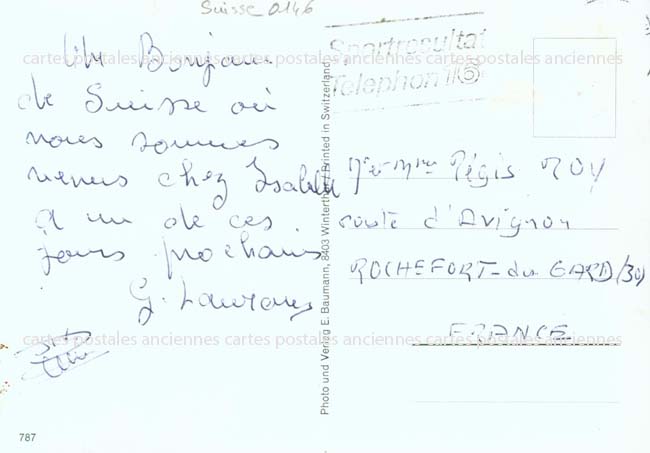 Suisse 0146
Un Bonjour
de Suisse où
nous sommes
venus chez Isabelle
A un de ces
jours prochains
G.
Sportresultat
Telephon 16
Photo und Verlag E. Baumann, 8403 Winterthur / Printed in Switzerland
Mr et Mme Régis ROY
route d'Avignon
ROCHEFORT-du GARD (30)
FRANCE
cartes postales anciennes cartes postales anciennes cartes postales anciennes
cartes postales anciennes cartes postales anciennes cartes postales anciennes
cartes postales anciennes cartes postales anciennes cartes postales anciennes
787